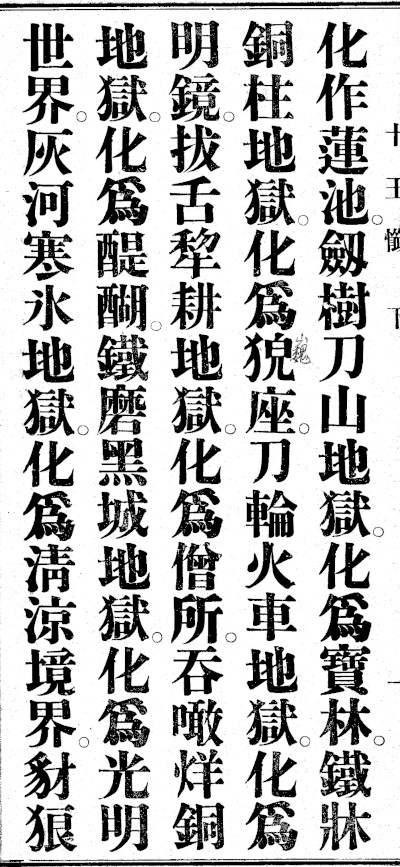 十王懺下
一
化作蓮池。劔樹刀山地獄。化爲寶林。鐵牀
銅柱地獄。化爲猊座。刀輪火車地獄。化爲
明鏡。拔舌犂耕地獄。化爲僧所。吞噉烊銅
地獄。化爲醍醐。鐵磨黑城地獄。化爲光明
世界。灰河寒氷地獄。化爲淸涼境界。豺狼